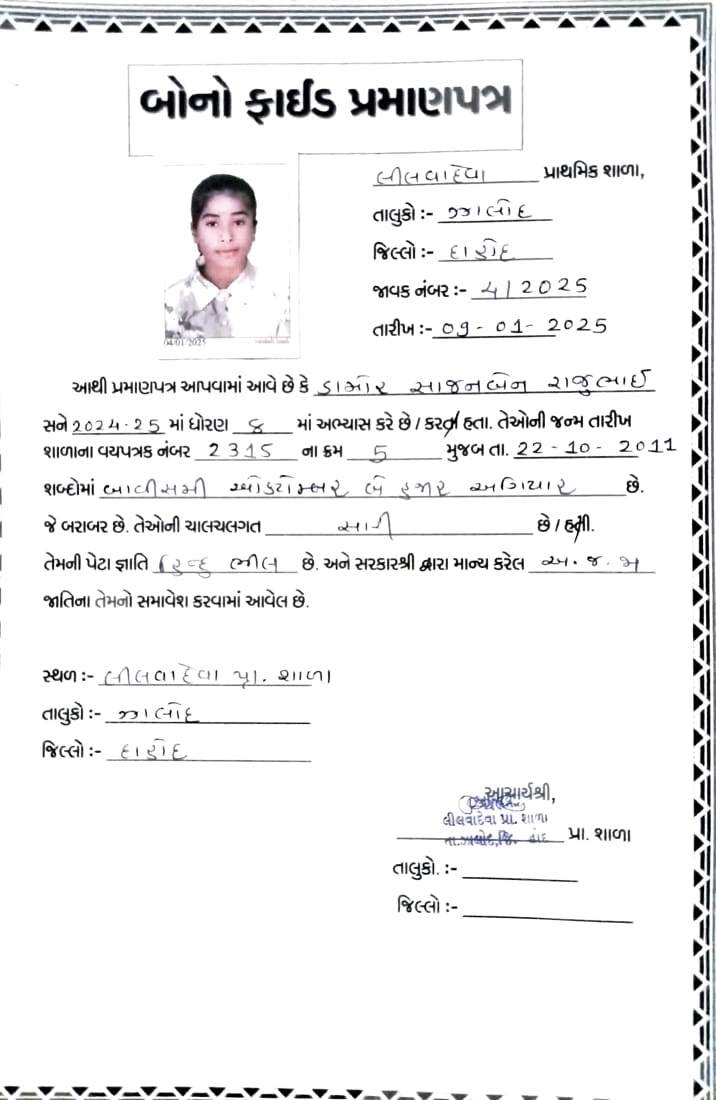 બોનો ફાઈડ પ્રમાણપત્ર
લીલવાદેવા પ્રાથમિક શાળા,
તાલુકો :- ઝાલોદ
જિલ્લો :- દાહોદ
જાવક નંબર :- 4/2025
તારીખ :- 09-01-2025
04/01/2025
આથી પ્રમાણપત્ર આપવામાં આવે છે કે ડામોર સાજનબેન રાજુભાઈ
સને 2024-25 માં ધોરણ ૬ માં અભ્યાસ કરે છે / કરતા હતા. તેઓની જન્મ તારીખ
શાળાના વયપત્રક નંબર 2315 ના ક્રમ 5 મુજબ તા. 22-10-2011
શબ્દોમાં બાવીસમી ઓક્ટોમ્બર બે હજાર અગિયાર છે.
જે બરાબર છે. તેઓની ચાલચલગત સારી છે / હતી.
તેમની પેટા જ્ઞાતિ હિન્દુ ભીલ છે. અને સરકારશ્રી દ્વારા માન્ય કરેલ અ.જ.જા
જાતિના તેમનો સમાવેશ કરવામાં આવેલ છે.
સ્થળ :- લીલવાદેવા પ્રા. શાળા
તાલુકો :- ઝાલોદ
જિલ્લો :- દાહોદ
આચાર્યશ્રી,
લીલવાદેવા પ્રા. શાળા
તા.ઝાલોદ,જિ.
પ્રા. શાળા
તાલુકો. :-
જિલ્લો :-